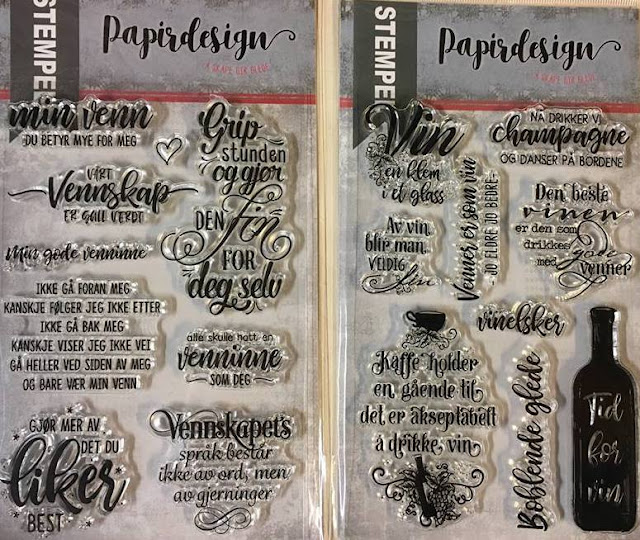 STEMPEL
Papirdesign
Å SKAPE GIR GLEDE
min venn
DU BETYR MYE FOR MEG
VÅRT
Vennskap
ER GULL VERDT
Min gode venninne
IKKE GÅ FORAN MEG
KANSKJE FØLGER JEG IKKE ETTER
IKKE GÅ BAK MEG
KANSKJE VISER JEG IKKE VEI
GÅ HELLER VED SIDEN AV MEG
OG BARE VÆR MIN VENN
GJØR MER AV
DET DU
liker
BEST
Grip
stunden
og gjør
DEN
fin
FOR
deg selv
alle skulle hatt en
venninne
SOM DEG
Vennskapets
språk består
ikke av ord, men
av gjerninger
STEMPEL
Papirdesign
Å SKAPE GIR GLEDE
Vin
en klem
i et glass
Av vin
blir man
VELDIG
fin
Venner er som vin
- JO ELDRE JO BEDRE -
NÅ DRIKKER VI
champagne
OG DANSER PÅ BORDENE
Den beste
vinen
er den som
drikkes
med gode
venner
Kaffe holder
en gående til
det er akseptabelt
å drikke vin
vinelsker
Boblende glede
Tid
for
vin